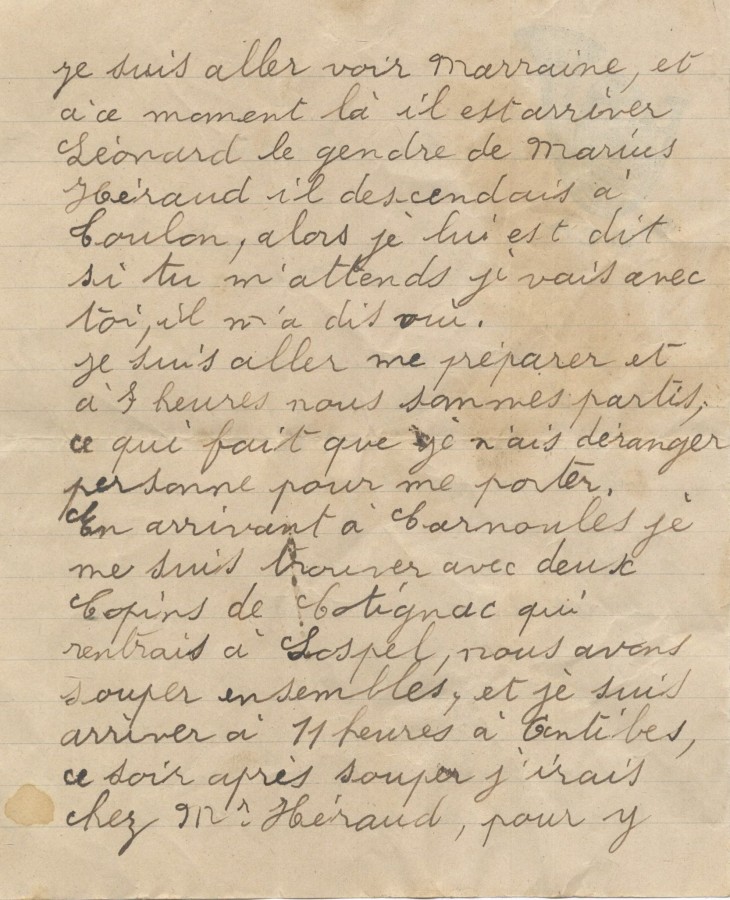 je suis aller voir Marraine, et
à ce moment là il est arriver
Léonard le gendre de Marius
Héraud il descendais à
Toulon, alors je lui est dit
si tu m'attends je vais avec
toi, il m'a dis oui.
je suis aller me préparer et
à heures nous sommes partis,
ce qui fait que je n'ais déranger
personne pour me porter.
En arrivant à Carnoules je
me suis trouver avec deux
Copins de Cotignac qui
rentrais à Sospel, nous avons
souper ensembles, et je suis
arriver à 11 heures à Antibes,
ce soir après souper j'irais
chez Mr. Héraud, pour y